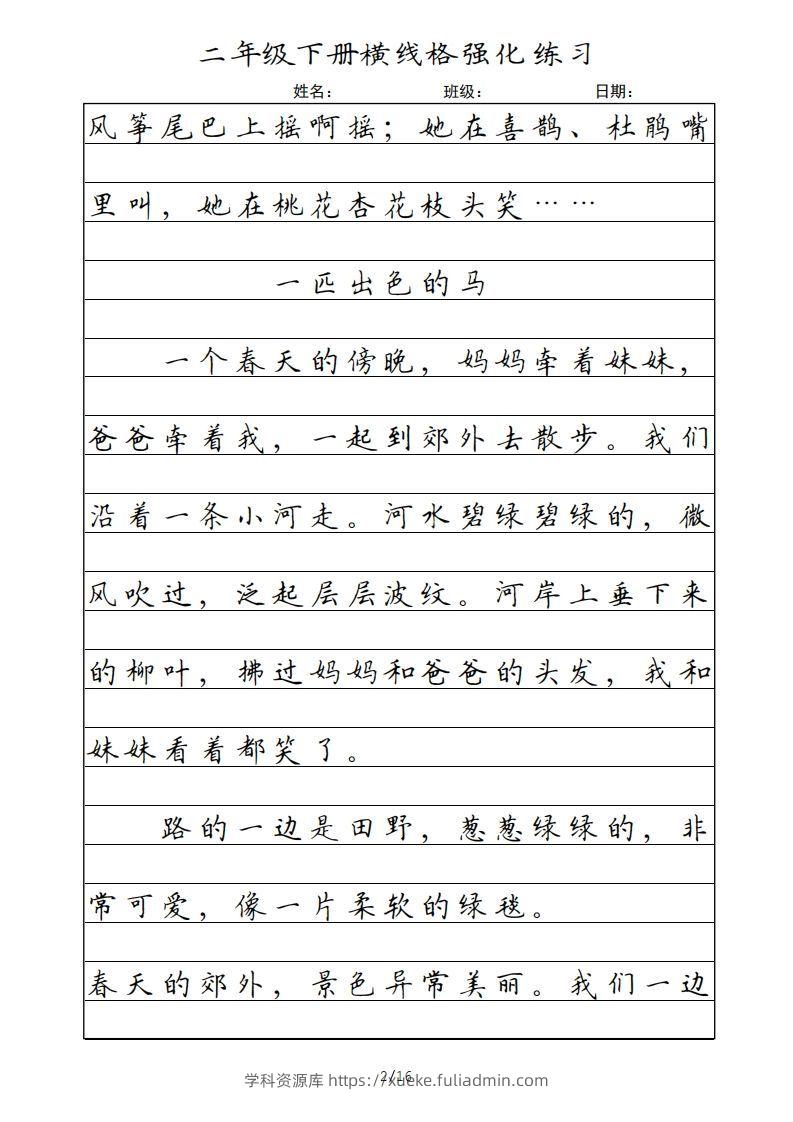 二年级下册横线格强化练习
姓名： 班级： 日期：
风筝尾巴上摇啊摇；她在喜鹊、杜鹃嘴
里叫，她在桃花杏花枝头笑……
一匹出色的马
一个春天的傍晚，妈妈牵着妹妹，
爸爸牵着我，一起到郊外去散步。我们
沿着一条小河走。河水碧绿碧绿的，微
风吹过，泛起层层波纹。河岸上垂下来
的柳叶，拂过妈妈和爸爸的头发，我和
妹妹看着都笑了。
路的一边是田野，葱葱绿绿的，非
常可爱，像一片柔软的绿毯。
春天的郊外，景色异常美丽。我们一边
2/16
学科资源库 https://xueke.fuliadmin.com